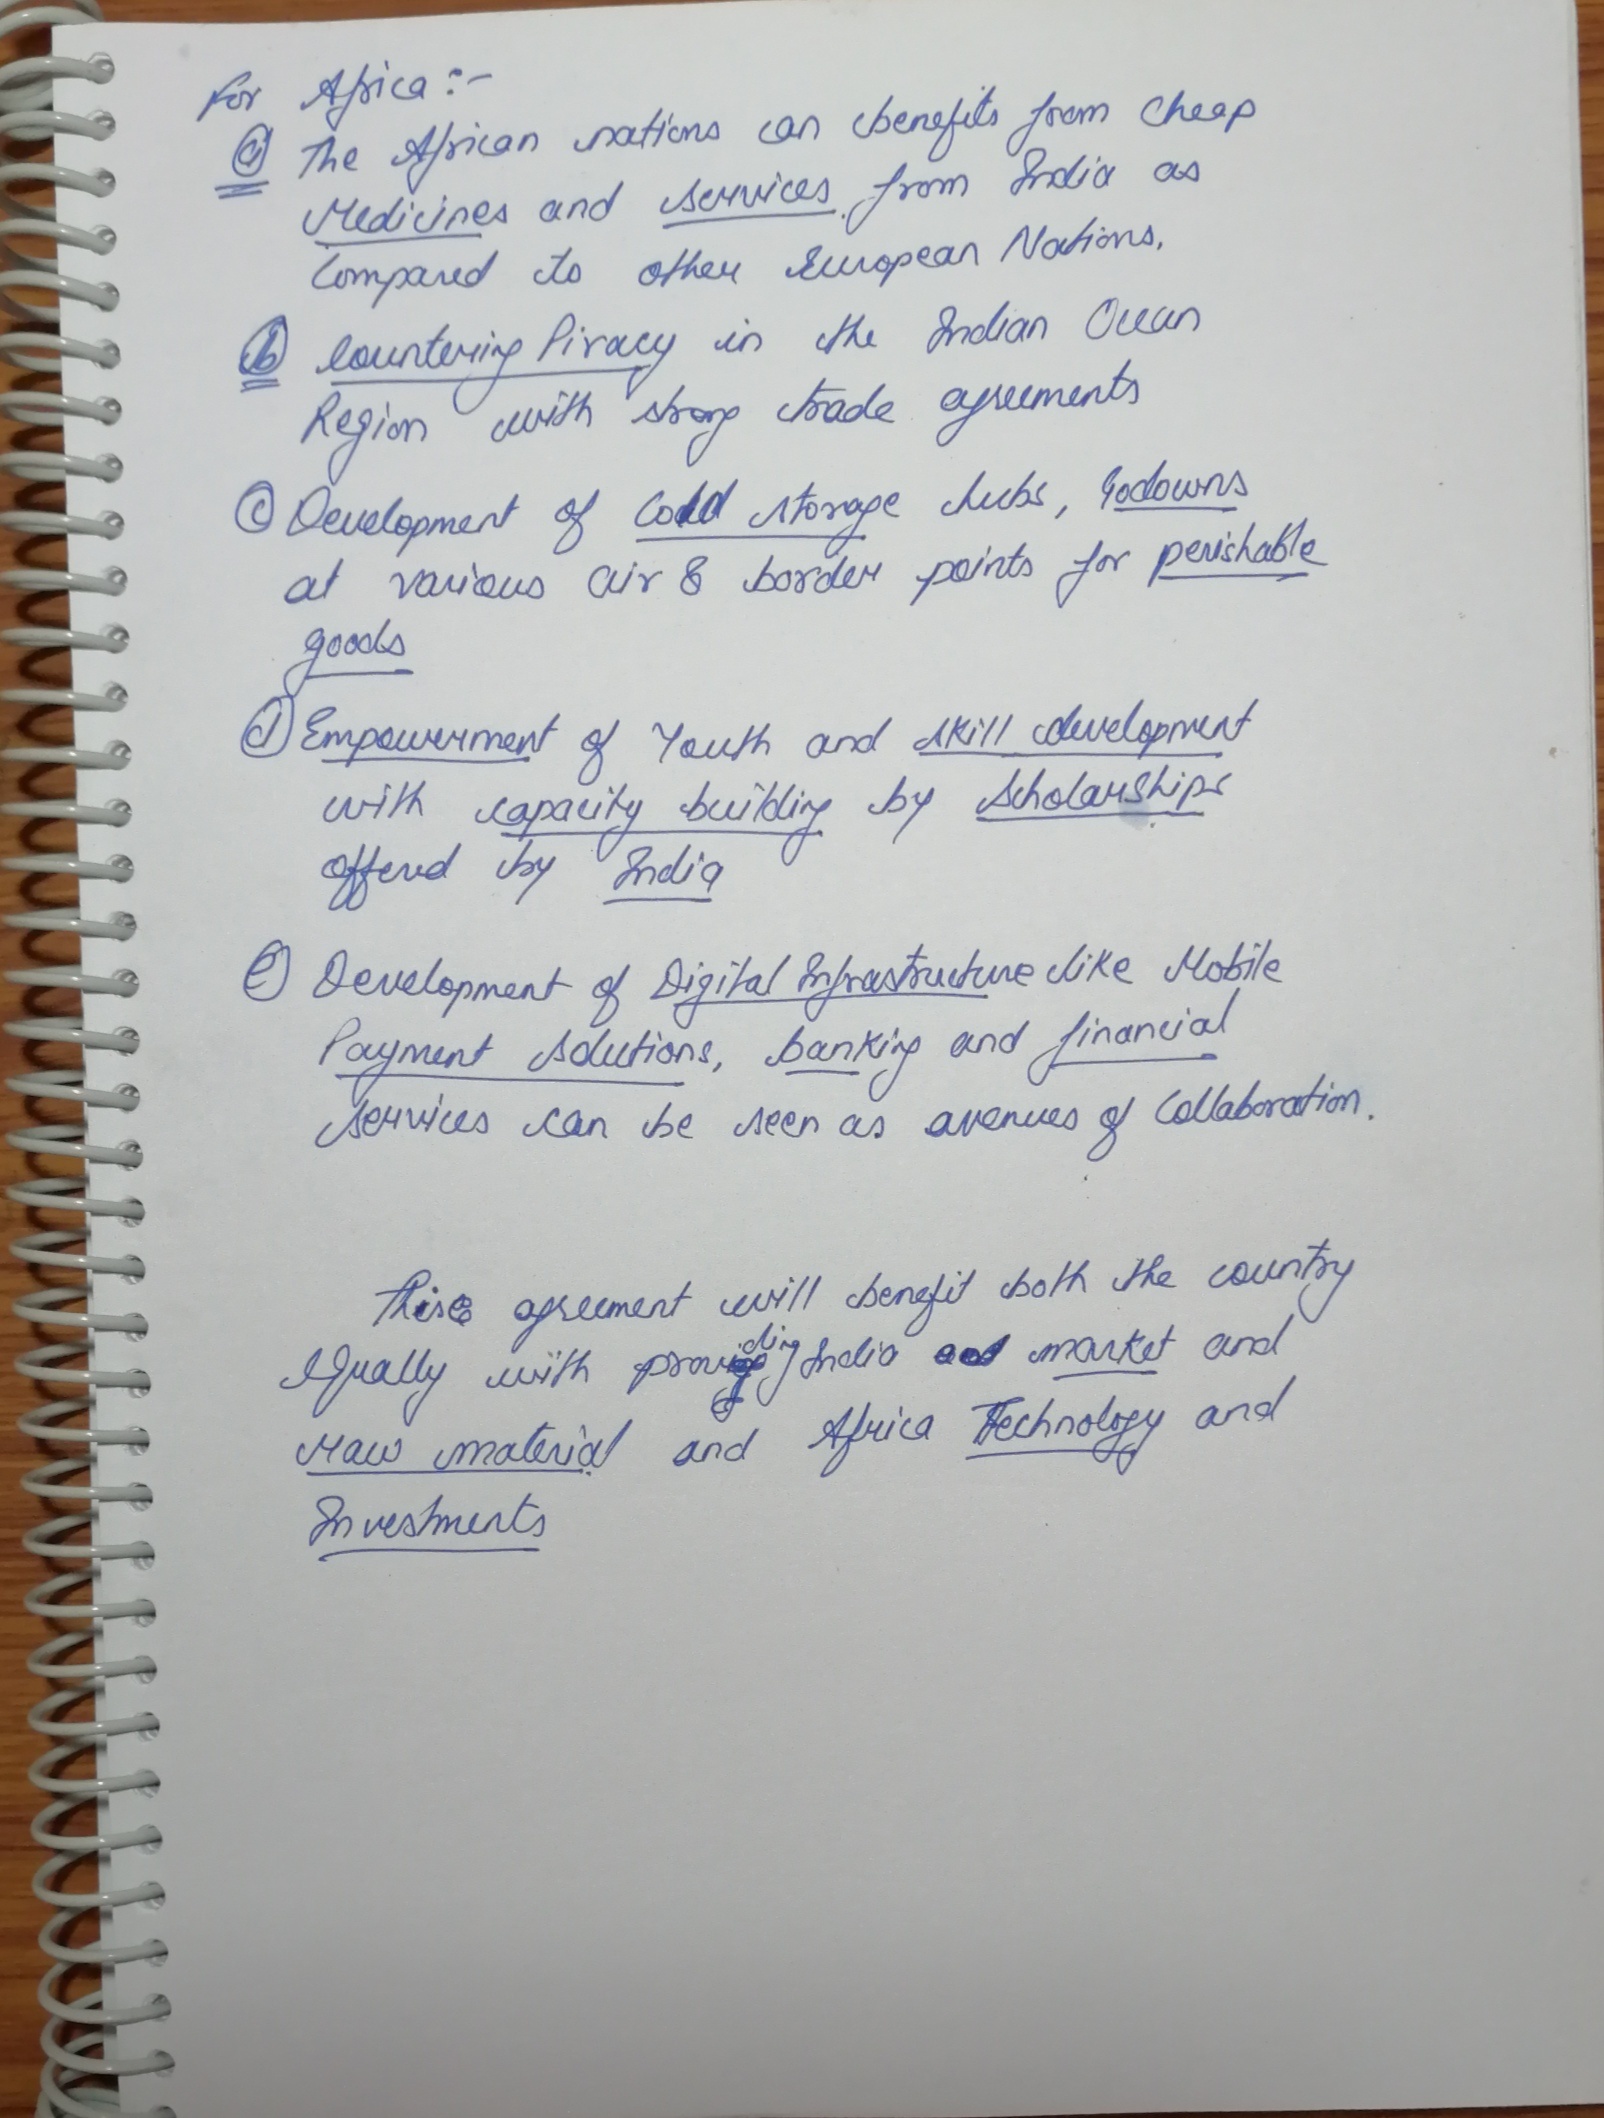 For Africa :-
(a) The African nations can benefits from cheap
Medicines and services from India as
Compared to other European Nations.
(b) Countering Piracy in the Indian Ocean
Region with strong trade agreements
(c) Development of Cold storage hubs, Godowns
at various air & border points for perishable
goods
(d) Empowerment of Youth and skill development
with capacity building by Scholarships
offered by India
(e) Development of Digital Infrastructure like Mobile
Payment solutions, banking and financial
services can be seen as avenues of Collaboration.
This agreement will benefit both the country
Equally with providing India market and
raw material and Africa Technology and
Investments